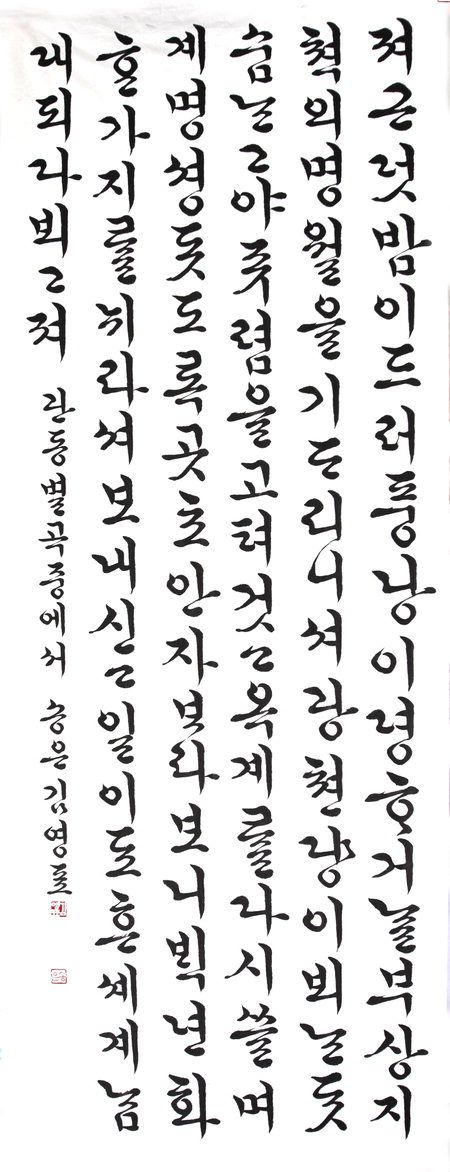 져근덧밤이드러풍낭이뎡ᄒᆞ거ᄂᆞᆯ부상지
쳑의명월을기ᄃᆞ리니셔광쳔댱이뵈ᄂᆞᆫᄃᆞᆺ
숨ᄂᆞᆫ고야쥬렴을고텨것고옥계ᄅᆞᆯ다시쓸며
계명셩돗도록곳초안자ᄇᆞ라보니ᄇᆡᆨ년화
ᄒᆞᆫ가지ᄅᆞᆯ뉘라셔보내신고일이됴흔셰계ᄂᆞᆷ
대되다뵈고져 관동별곡중에서 승은김영표